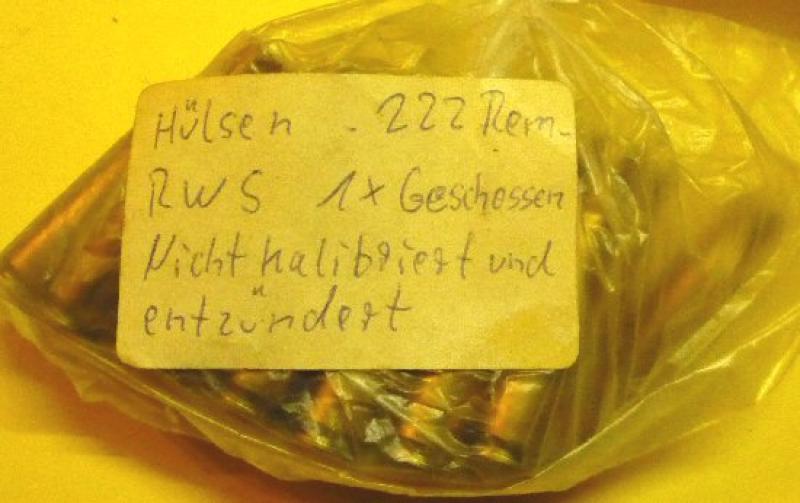 Hülsen .222 Rem.
RWS 1x Geschossen
Nicht kalibriert und
entzündert